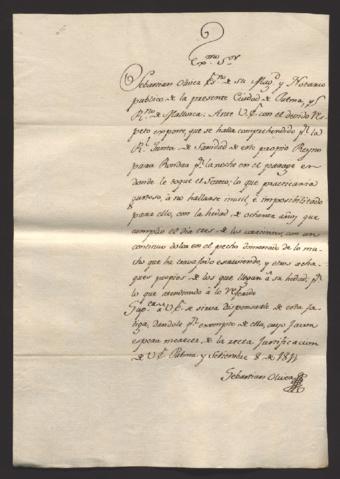 Exmo Sor
Sebastian Oliver Esno de su Magd y Notario
publico de la presente Ciudad de Palma, y
Rno de Mallorca: Ante V.E. con el devido res
peto expone, qe se halla comprehendido pr la
Rl Junta de Sanidad de este propio Reyno
para Rondar pr la noche en el parage en
donde le toque el Sorteo; lo que practicaria
gustoso, à no hallarse inutil, è imposibilitado
para ello, con la hedad de ochenta años que
cumplió el dia tres de los corrientes, con un
continuo dolor en el pecho dimanado de lo mu
cho que ha travajado escriviendo, y otros acha
ques propios de los que llegan à su hedad; pr
lo que atendiendo à lo referido
Supca à V.E. se sirva dispensarle de esta fa
tiga, dandole pr exempto de ella, cuyo favor
espera merecer de la recta justificacion
de V.E. Palma y Setiembre 8 de
Sebastian Oliver